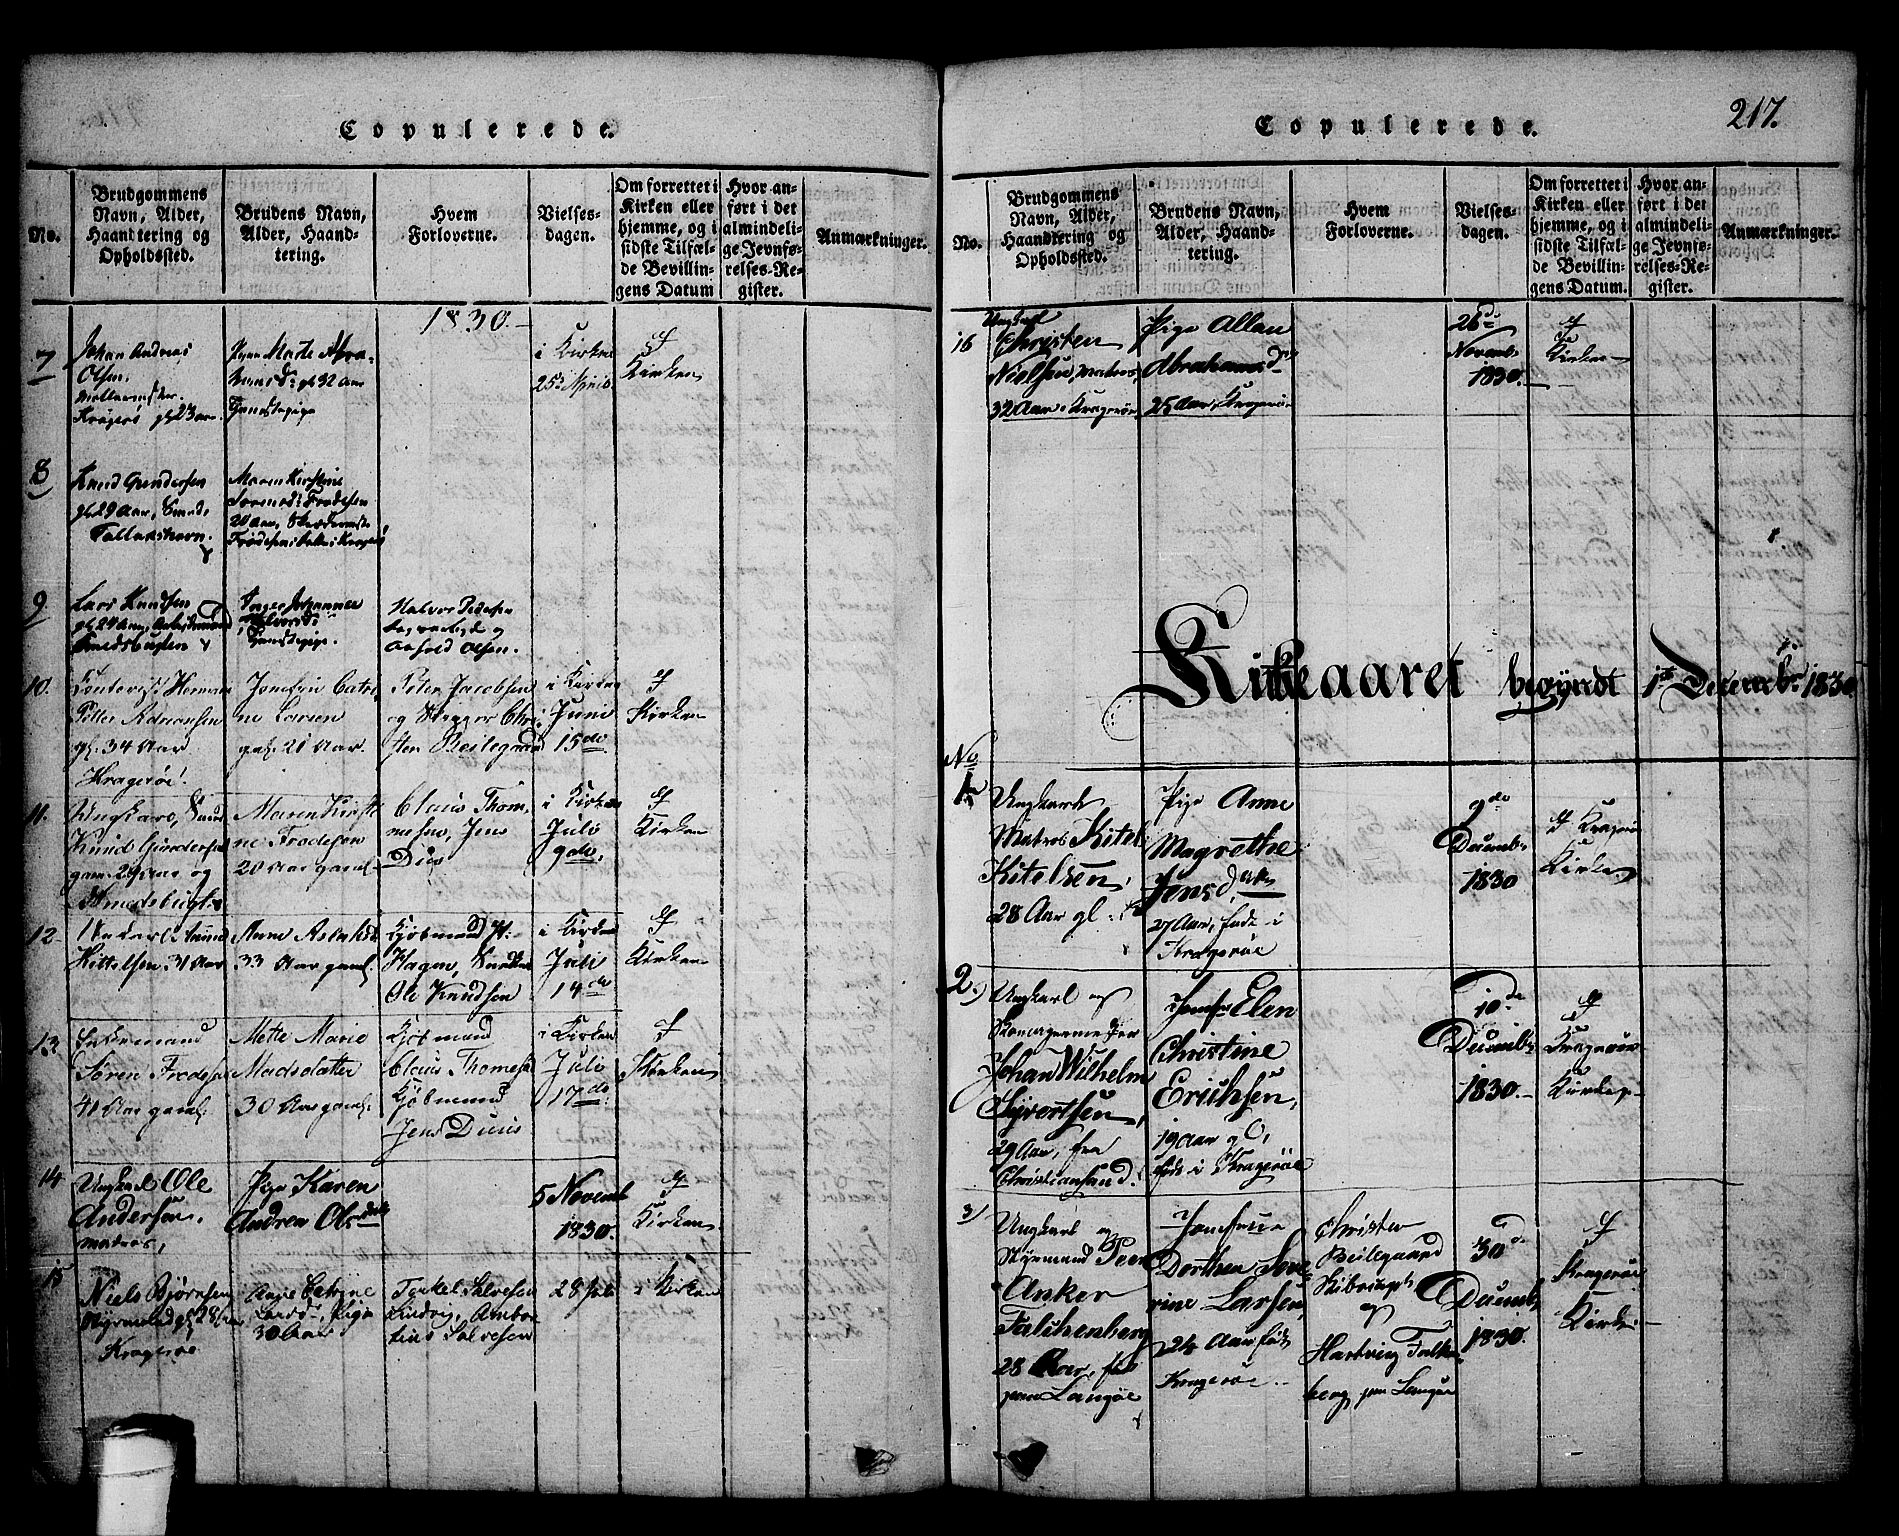 Copulerede.
No.
Brudgommens
Navn, Alder,
Haandtering og
Opholdssted.
Brudens Navn,
Alder, Haand-
tering.
Hvem
Forloverne.
Vielses-
dagen.
Om forrettet i
Kirken eller
hjemme, og i
sidste Tilfæl-
de Bevillin-
gens Datum
Hvor an-
ført i det
almindeli-
ge Jevnfø-
relses-Re-
gister.
Anmærkninger.
1830.
7
Johan Andreas
Olsen
Kragerø gl. 23 Aar
Marte Abra-
hamsd. gl. 32 Aar
Tjenestepige
i Kirken
25de April
Kirken
8
Knud Gundersen
gl. 29 Aar, Smed,
Tallakshavn.
Maren Kirstine
Sørensd. Frodesen
20 Aar,
9
Lars Knudsen
gl. 24 Aar,
Smedsbugten
Inger Johanne
Halvorsd.
Tjenestepige.
Halvor Pedersen
og
Olsen.
10.
Herman
Petter Adriansen
gl. 34 Aar
Kragerøe.
Jomfru Catri
ne Larsen
gl. 21 Aar.
Peter Jacobsen
og Skipper Chri
sten Beilegaard
i Kirken
Juni
15de
Kirken
11.
Ungkarl, Smed
Knud Gundersen
gam. 29 Aar og
Smedsbugten
Maren Kirsti
ne Frodesen
20 Aar gaml.
Claus Thom,
mesen, Jens
Dius
i Kirken
Juli
9de.
Kirken
12.
Kittelsen 31 Aar
Anne Aslaksd.
33 Aar gaml.
Kjøbmand H.
Hagen,
Ole Knudsen
i Kirken
Juli
14de
Kirken
13.
Søren Frodesen
41 Aar gaml.
Mette Marie
Madsdatter
30 Aar gaml.
Kjøbmand
Claus Thomese
Kjøbmand
Jens Duus
i Kirken
Juli
17de.
Kirken
14
Ungkarl Ole
Andersen,
Matros,
Pige Karen
Andrea Olsdatr
5 Novemb
1830.
Kirken
15
Niels Bjørnsen
Styrmand gl. 28 Aar
Kragerøe
Anne Catrine
Larsd. Pige
30 Aar
Torkel Salvesen
Ludvig, Ambro
sius Salvesen
28 Juli
i Kirken
Copulerede.
217.
No.
Brudgommens
Navn, Alder,
Haandtering og
Opholdssted.
Brudens Navn,
Alder, Haand-
tering.
Hvem
Forloverne.
Vielses-
dagen.
Om forrettet i
Kirken eller
hjemme, og i
sidste Tilfæl-
de Bevillin-
gens Datum.
Hvor an-
ført i det
almindeli-
ge Jevnfø-
relses-Re-
gister.
Anmærkninger.
16
Ungkarl
Christen
Nielsen, Matros,
32 Aar, Kragerøe
Pige Allau
Abrahamsd
25 Aar, Kragerøe
26de
Novemb.
1830.
Kirken
Kirkeaaret begyndt 1ste Decemb. 1830
No
1
Ungkarl
Matros Kitel
Kitelsen,
28 Aar gl.
Pige Anne
Magrethe
Jensdatr
27 Aar, født i
Kragerøe
2de
Decembr
1830
Kragerø
Kirke
2.)
Ungkarl og
Skomagermester
Johan Wilhelm
Syvertsen,
29 Aar, fra
Christiansand.
Jomfr. Elen
Christine
Erichsen,
19 Aar gl.,
født i Kragerøe
10de
Decembr
1830.
Kragerøe
Kirke
3)
Ungkarl og
Styrmand Peer
Anker
Falchenberg
28 Aar, født
paa Langøe
Jomfrue
Dorthea Seve
rine Larsen,
24 Aar født
Kragerøe
Christen
Beilegaard
Skibscapt.
og
Hartvig Falken
berg, paa Langøe
30de
Decembr
1830.
Kragerøe
Kirke